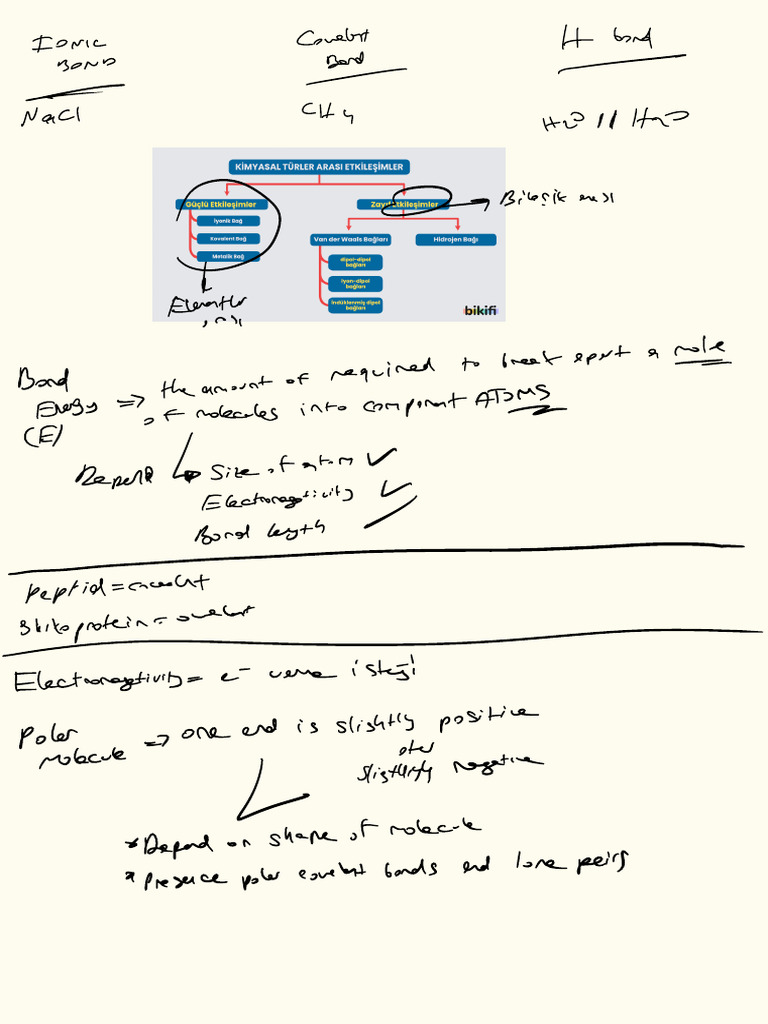 IONIC BOND
Covalent Bond
H bond
NaCl
CH4
H2O // H2O
KİMYASAL TÜRLER ARASI ETKİLEŞİMLER
Güçlü Etkileşimler
Zayıf Etkileşimler
Bileşik arası
İyonik Bağ
Kovalent Bağ
Metalik Bağ
Van der Waals Bağları
Hidrojen Bağı
dipol-dipol bağları
iyon-dipol bağları
indüklenmiş dipol bağları
bikifi
Elementler arası
Bond Energy (E) => the amount of required to break apart a mole
of molecules into component ATOMS
Depend
Size of atom ✓
Electronegativity ✓
Bond length
Peptid = covalent
glikoprotein = covalent
Electronegativity = e- verme isteği
Polar molecule => one end is slightly positive
other slightly negative
* Depend on shape of molecule
* Presence polar covalent bonds and lone pairs